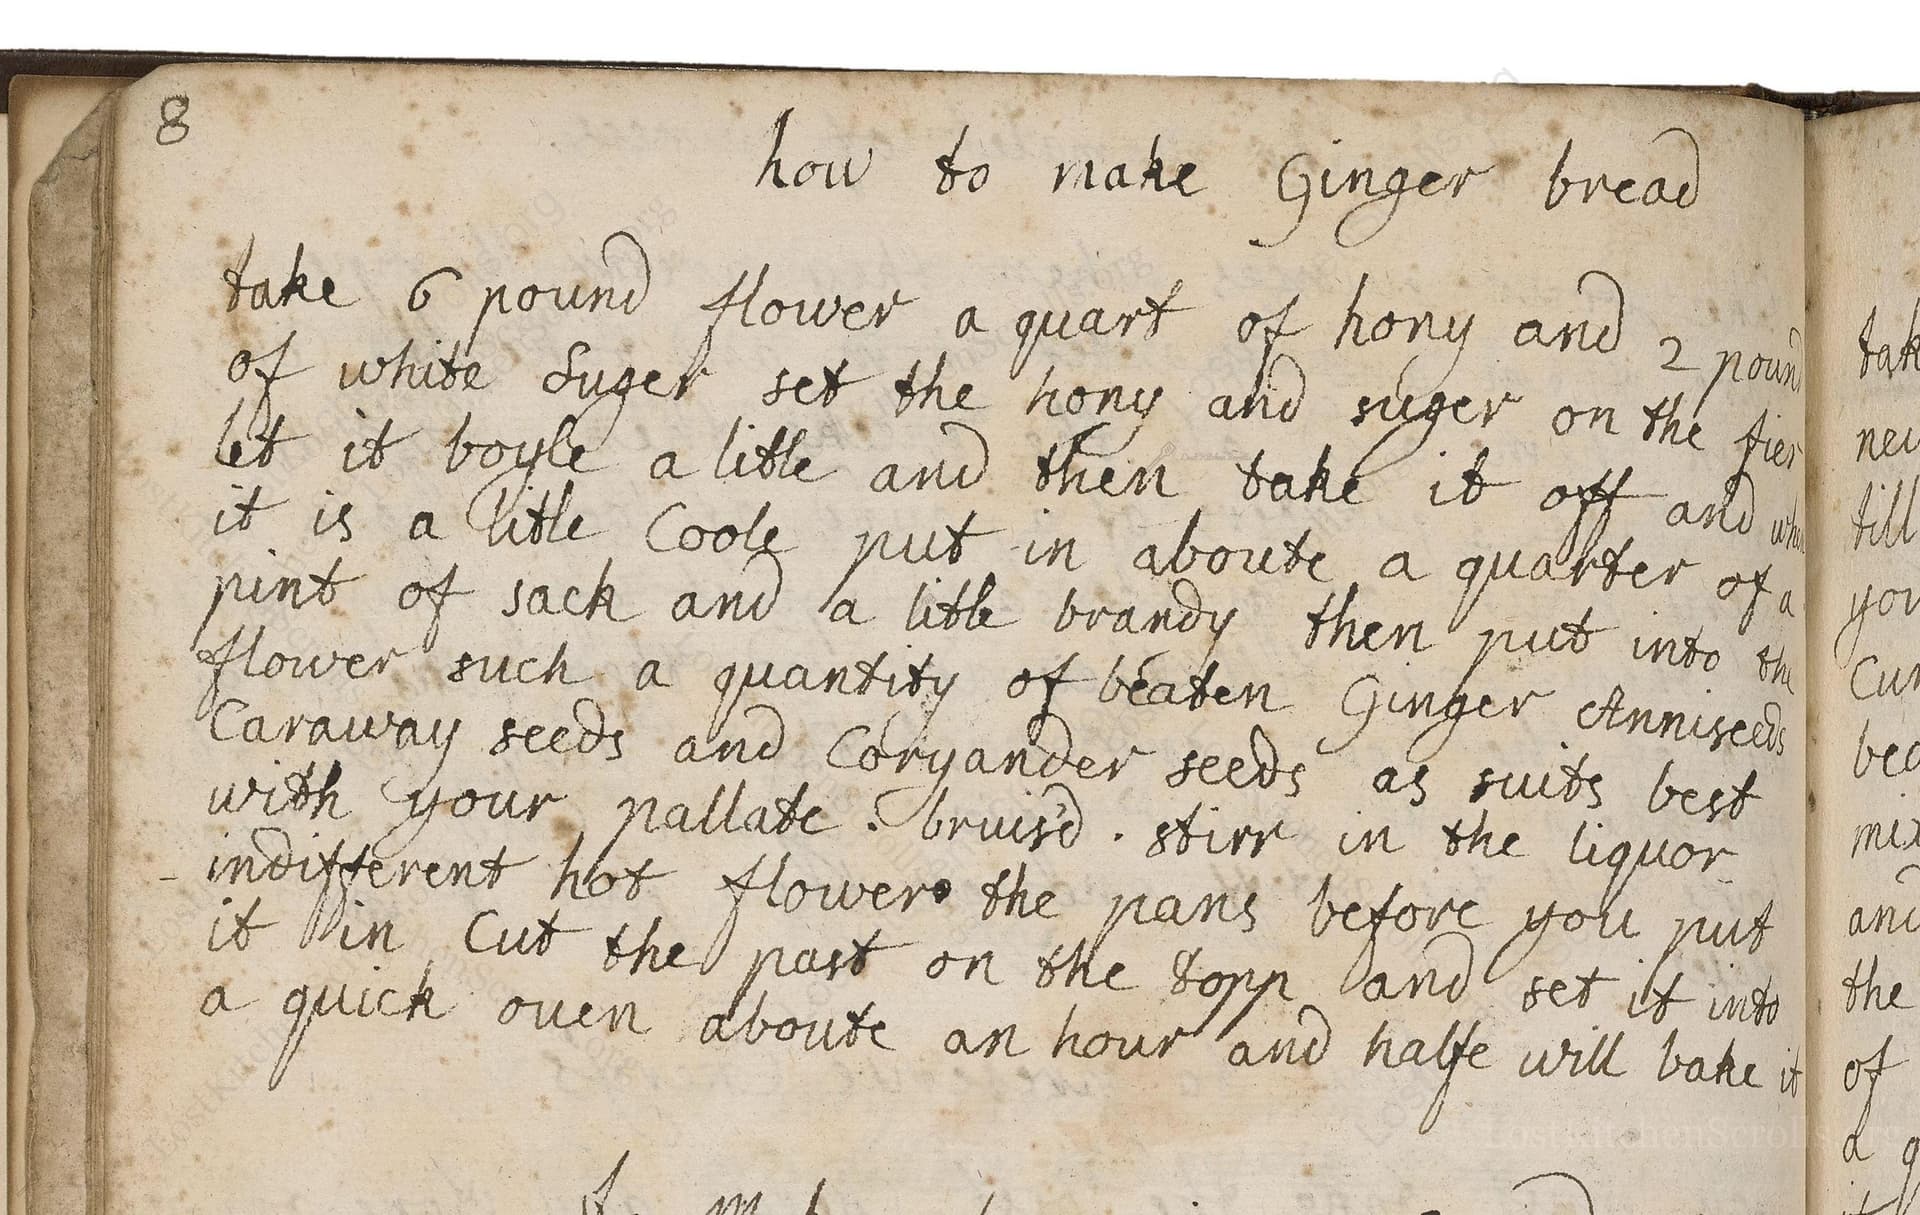 8
how to make Ginger bread
take 6 pound flower a quart of hony and 2 pound
of white Suger set the hony and suger on the fier
let it boyle a litle and then take it off and when
it is a litle Coole put in aboute a quarter of a
pint of sack and a litle brandy then put into the
flower such a quantity of beaten Ginger Anniseeds
Caraway seeds and Coryander seeds as suits best
with your pallate . bruis'd . stirr in the liquor
indifferent hot flower the pans before you put
it in Cut the past on the topp and set it into
a quick oven aboute an hour and halfe will bake it
tak
neu
till
you
Cur
bea
mix
and
the
of
a q
LostKitchenScrolls.org